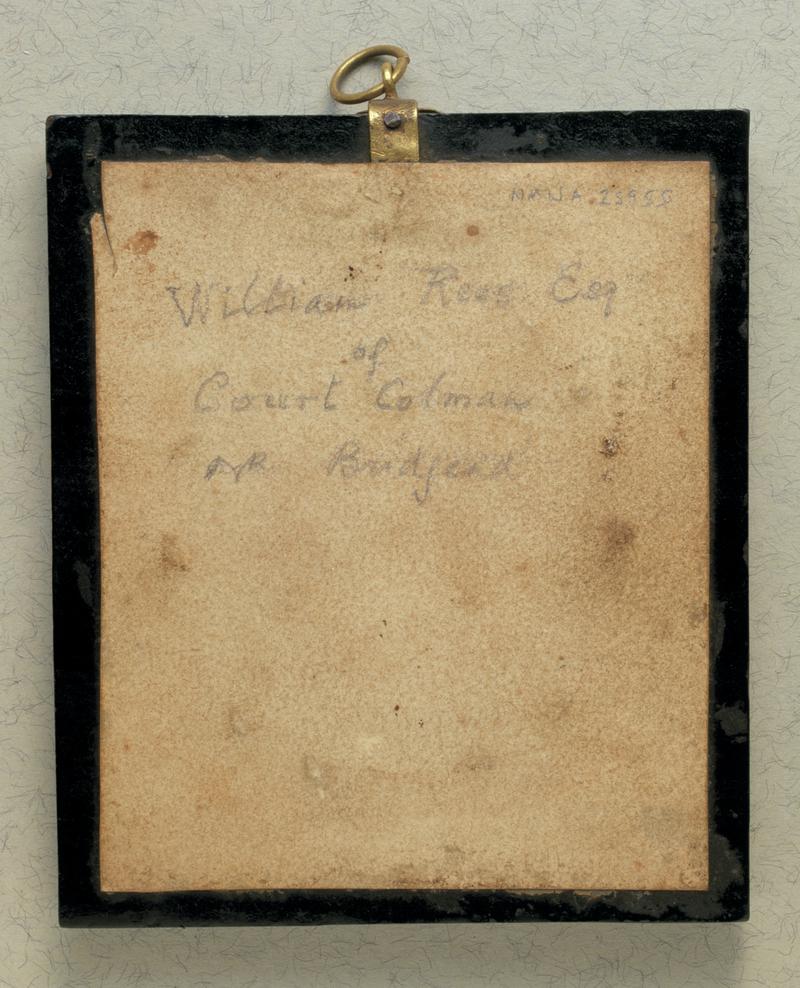 NMWA 25955
William Rees Esq
of
Court Colman
Bridgend